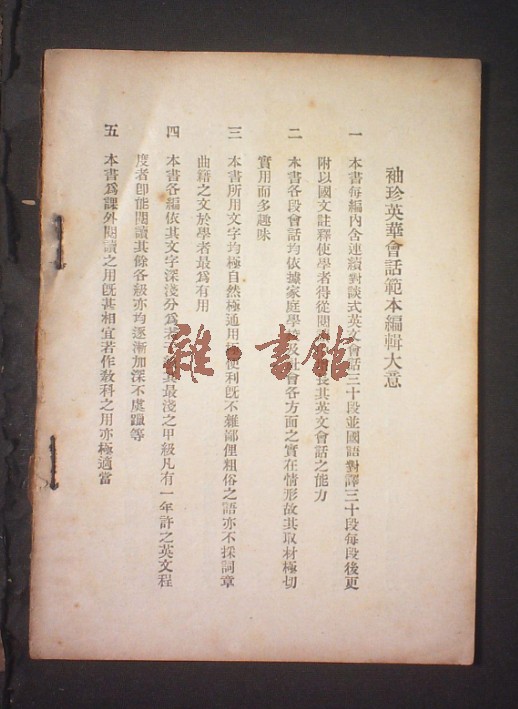 袖珍英華會話範本編輯大意
一 本書每編內含連續對談式英文會話三十段並國語對譯三十段每段後更
附以國文註釋使學者得從閱其英文會話之能力
二 本書各段會話均依據家庭學及社會各方面之實在情形故其取材極切
實用而多趣味
三 本書所用文字均極自然極通用便利旣不雜鄙俚粗俗之語亦不採詞章
曲籍之文於學者最爲有用
四 本書各編依其文字深淺分爲最淺之甲級凡有一年許之英文程
度者卽能閱讀其餘各級亦均逐漸加深不虞躐等
五 本書爲課外閱讀之用旣甚相宜若作敎科之用亦極適當
雜·書館